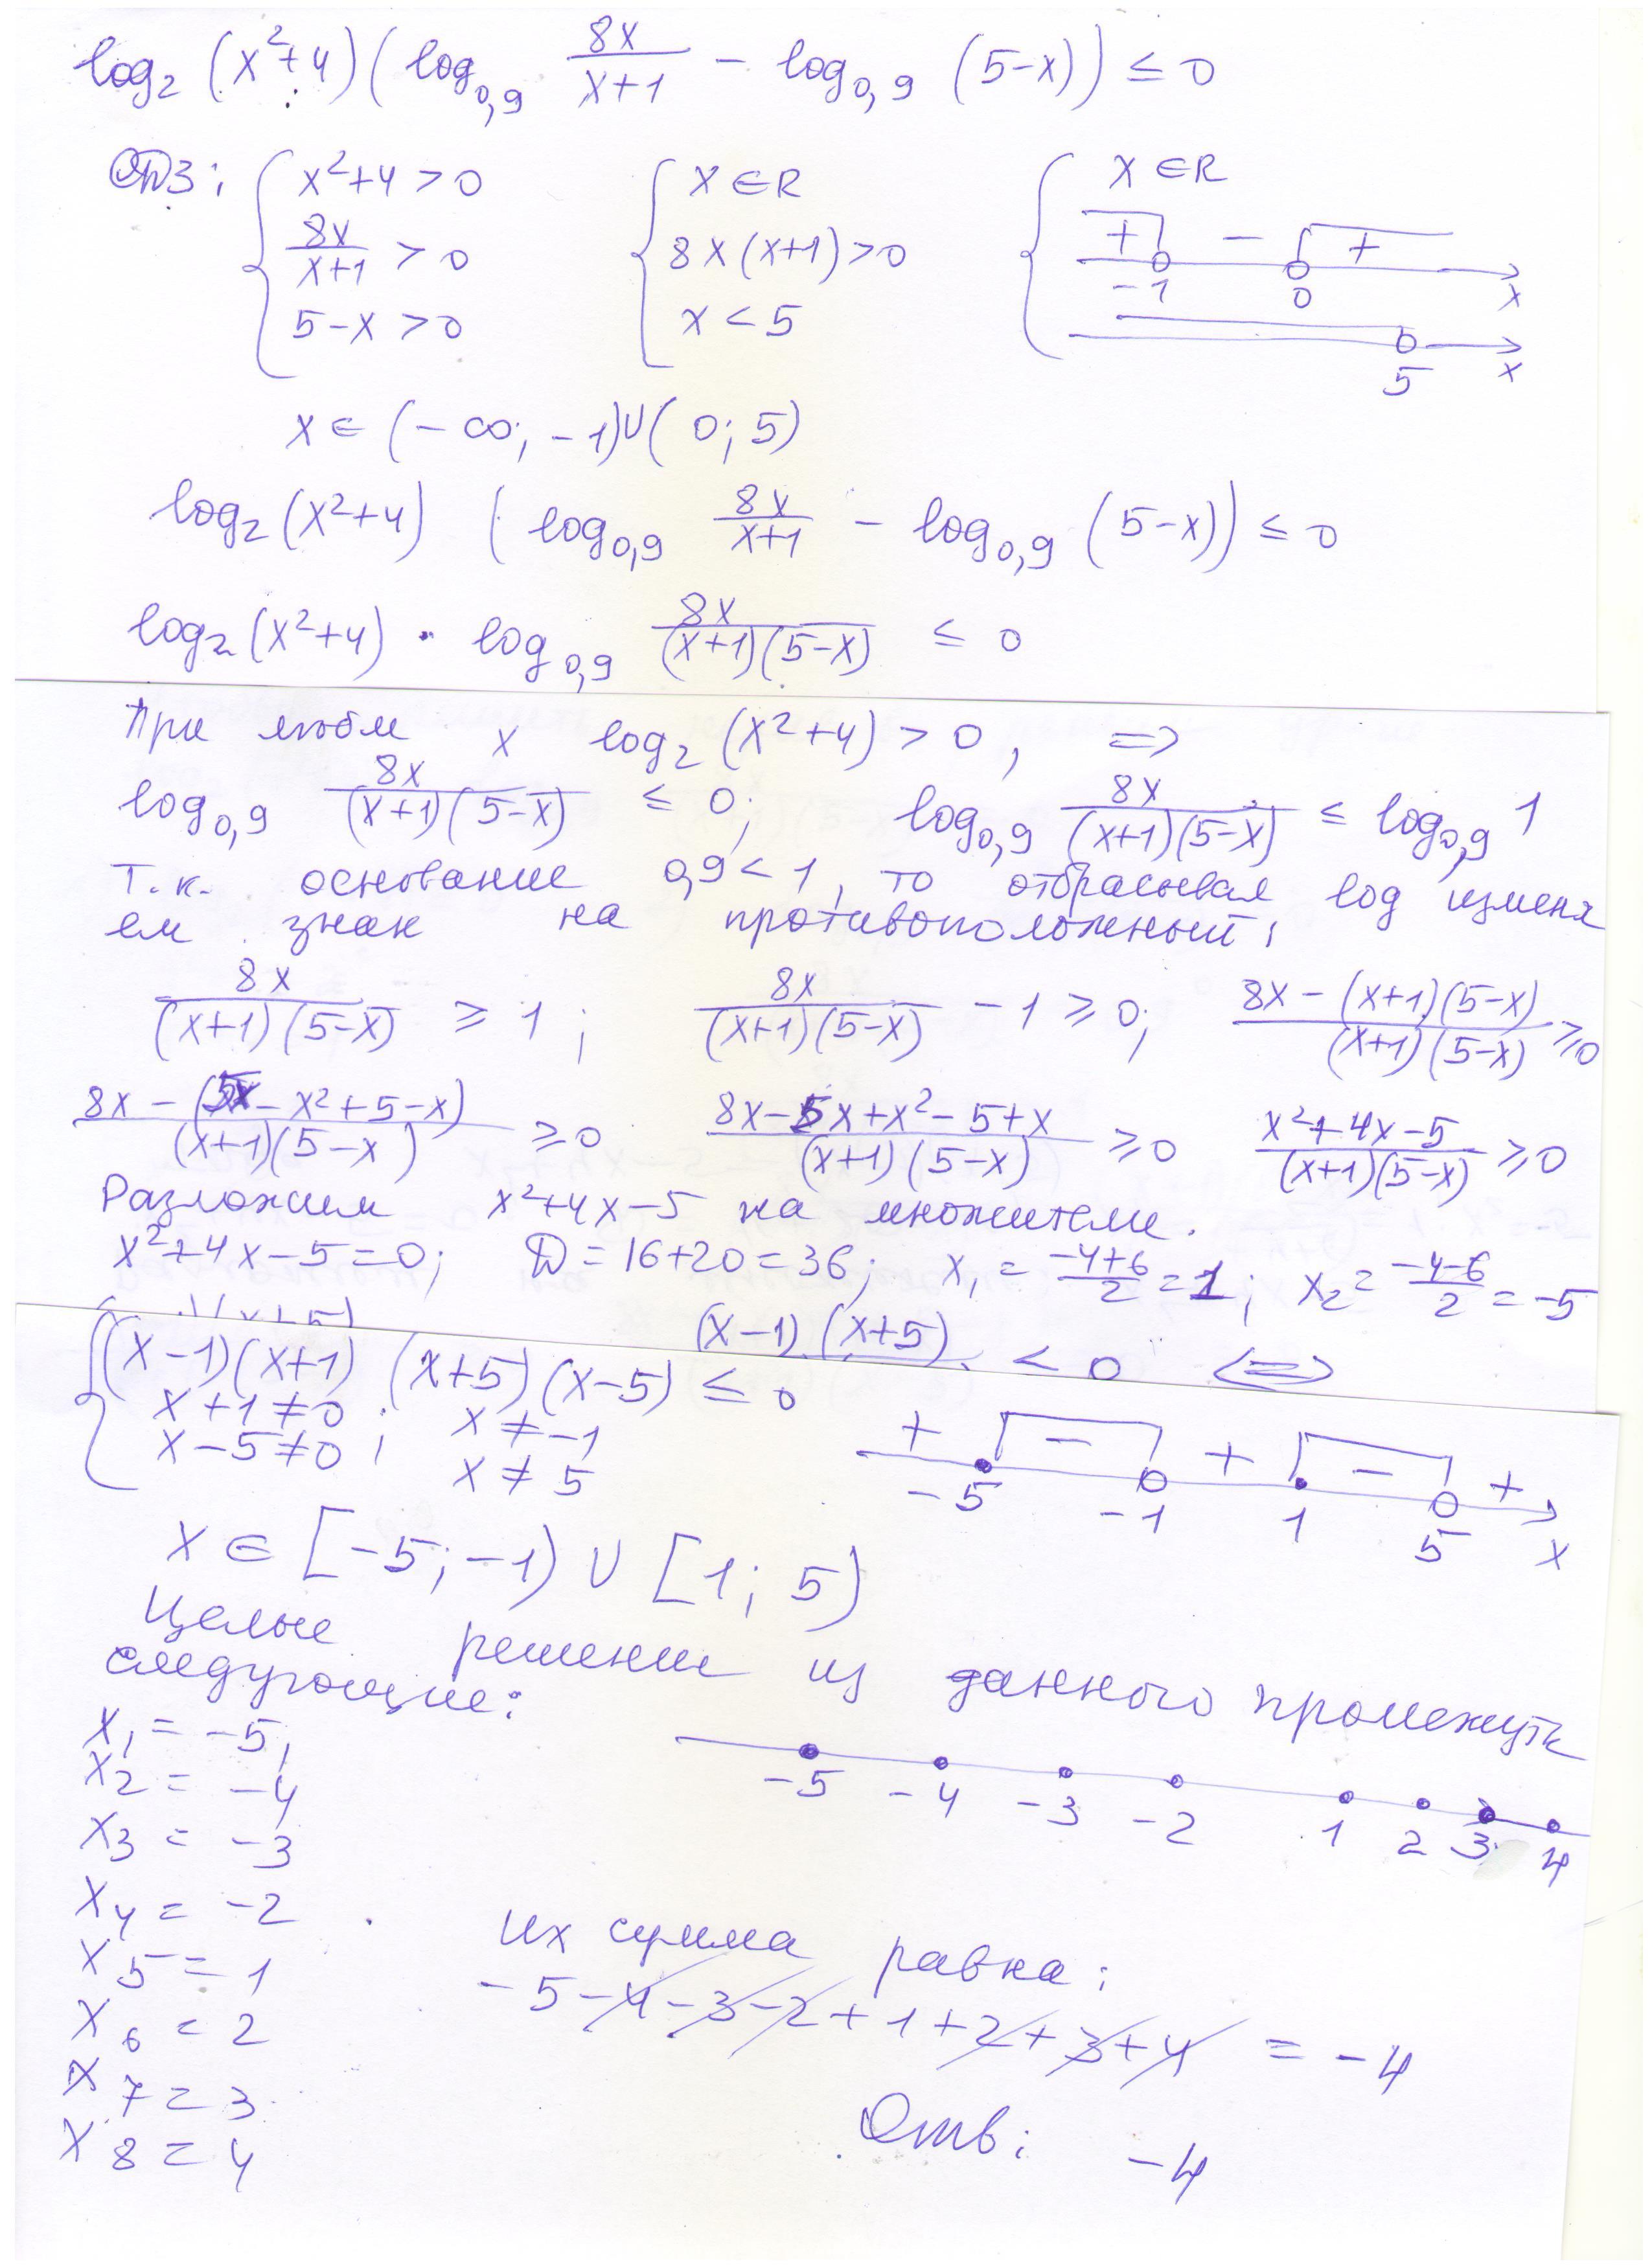 log₂ (x²+4)(log₀,₉ 8x/(x+1) − log₀,₉ (5−x)) ≤ 0
ОДЗ: { x²+4 > 0 { x ∈ R { x ∈ R
8x/(x+1) > 0 8x(x+1) > 0 + − + −1 0 x
5−x > 0 x < 5 5 x
x ∈ (−∞; −1)∪(0; 5)
log₂(x²+4) (log₀,₉ 8x/(x+1) − log₀,₉ (5−x)) ≤ 0
log₂(x²+4) · log₀,₉ 8x/((x+1)(5−x)) ≤ 0
При любом x log₂(x²+4) > 0, =>
log₀,₉ 8x/((x+1)(5−x)) ≤ 0; log₀,₉ 8x/((x+1)(5−x)) ≤ log₀,₉ 1
Т.к. основание 0,9 < 1, то отбрасывая log изменя
ем знак на противоположный:
8x/((x+1)(5−x)) ≥ 1; 8x/((x+1)(5−x)) − 1 ≥ 0; (8x−(x+1)(5−x))/((x+1)(5−x)) ≥ 0
(8x−(5x−x²+5−x))/((x+1)(5−x)) ≥ 0 (8x−5x+x²−5+x)/((x+1)(5−x)) ≥ 0 (x²+4x−5)/((x+1)(5−x)) ≥ 0
Разложим x²+4x−5 на множители.
x²+4x−5=0; D=16+20=36; x₁ = (−4+6)/2 = 1; x₂ = (−4−6)/2 = −5
(x−1)(x+5) < 0 <=>
{ (x−1)(x+1)(x+5)(x−5) ≤ 0
x+1≠0; x≠−1 + − + − +
x−5≠0; x≠5 −5 −1 1 5 x
x ∈ [−5; −1) ∪ [1; 5)
Целые решение из данного промежутк
следующие:
x₁ = −5;
x₂ = −4 −5 −4 −3 −2 1 2 3 4
x₃ = −3
x₄ = −2 Их сумма равна:
x₅ = 1 −5−4−3−2+1+2+3+4 = −4
x₆ = 2
x₇ = 3
x₈ = 4 Отв: −4